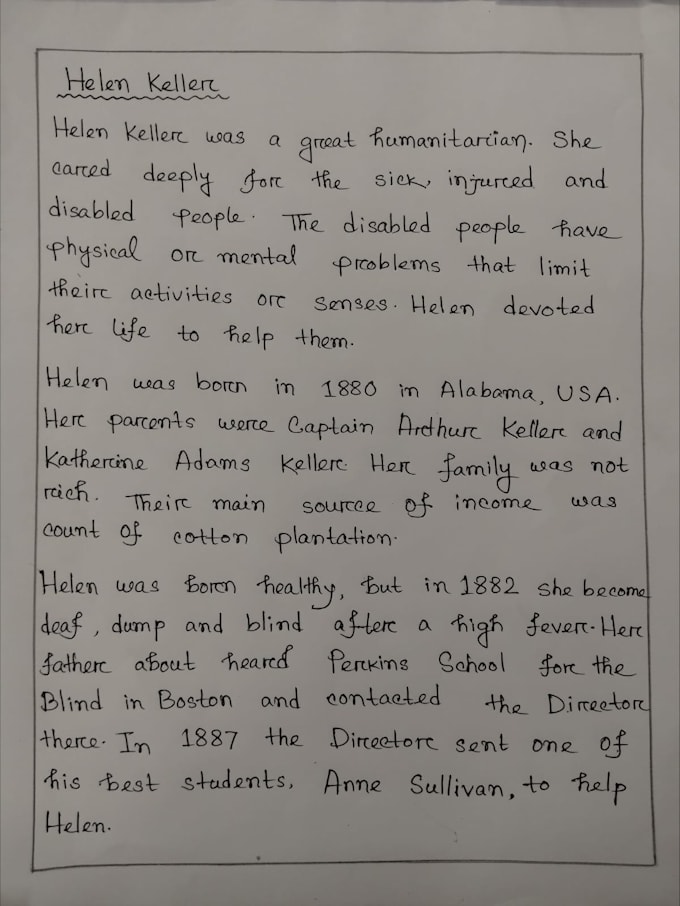 Helen Keller
Helen Keller was a great humanitarian. She
cared deeply for the sick, injured and
disabled people. The disabled people have
physical or mental problems that limit
their activities or senses. Helen devoted
her life to help them.
Helen was born in 1880 in Alabama, USA.
Her parents were Captain Arthur Keller and
Katherine Adams Keller. Her family was not
rich. Their main source of income was
count of cotton plantation.
Helen was born healthy, but in 1882 she become
deaf, dump and blind after a high fever. Her
father about heard Perkins School for the
Blind in Boston and contacted the Director
there. In 1887 the Director sent one of
his best students, Anne Sullivan, to help
Helen.